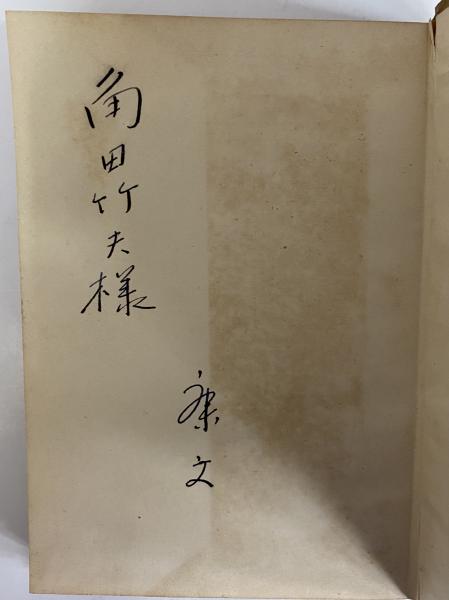 角田竹夫様
康文